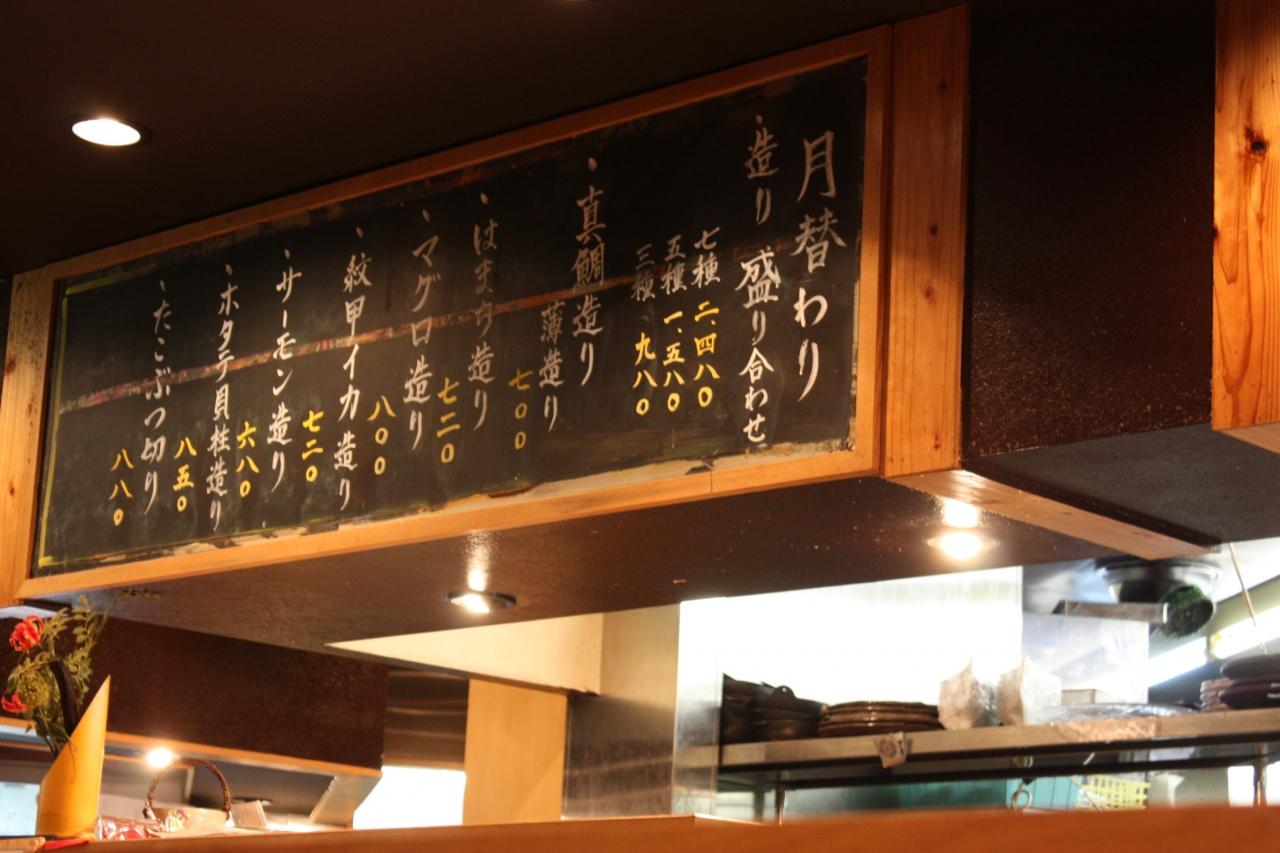 月替わり
・造り 盛り合わせ
七種 二、四八〇
五種 一、五八〇
三種 九八〇
・真鯛造り
薄造り
七〇〇
・はまち造り
七二〇
・マグロ造り
八〇〇
・紋甲イカ造り
七二〇
・サーモン造り
六八〇
・ホタテ貝柱造り
八五〇
・たこぶつ切り
八八〇